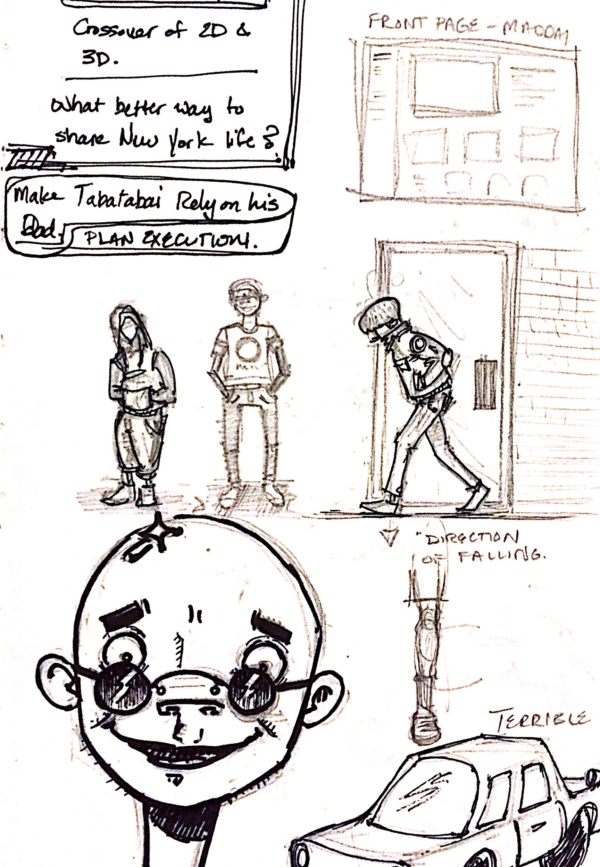 Crossover of 2D &
3D.
What better way to
share New York life?
Make Tabatabai Rely on his
Dad.
PLAN EXECUTION.
FRONT PAGE -
"DIRECTION
OF FALLING.
TERRIBLE